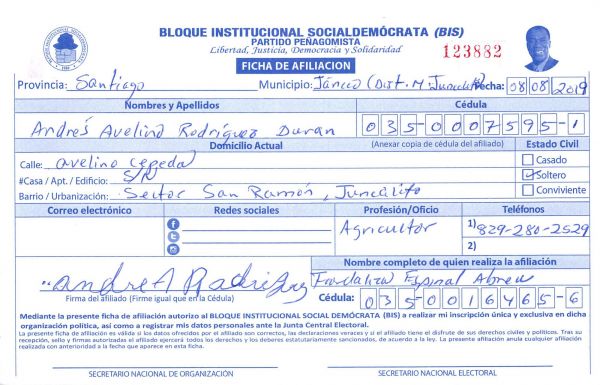 BLOQUE INSTITUCIONAL SOCIALDEMÓCRATA (BIS)
PARTIDO PEÑAGOMISTA
Libertad, Justicia, Democracia y Solidaridad
123882
FICHA DE AFILIACION
Provincia: Santiago Municipio: Jánico (Dist. M. Juncalito) Fecha: 08/08/2019
Nombres y Apellidos Cédula
Andrés Avelino Rodríguez Duran 035-0007595-1
Domicilio Actual (Anexar copia de cédula del afiliado) Estado Civil
Calle: avelino Cepeda Casado
#Casa / Apt. / Edificio: S/N Soltero
Barrio / Urbanización: Sector San Ramón, Juncalito Conviviente
Correo electrónico Redes sociales Profesión/Oficio Teléfonos
Agricultor 1) 829-280-2529
2)
Nombre completo de quien realiza la afiliación
andre A Rodriguez Espinal Abreu
Firma del afiliado (Firme igual que en la Cédula) Cédula: 035-0016465-6
Mediante la presente ficha de afiliación autorizo al BLOQUE INSTITUCIONAL SOCIAL DEMÓCRATA (BIS) a realizar mi inscripción única y exclusiva en dicha
organización política, así como a registrar mis datos personales ante la Junta Central Electoral.
La presente ficha de afiliación es válida si los datos ofrecidos por el afiliado son correctos, las declaraciones veraces y si el afiliado tiene el disfrute de sus derechos civiles y políticos. Tras su
recepción, sello y firmas autorizadas el afiliado ejercerá todos los derechos y los deberes estatutariamente sancionados, de acuerdo a la ley. La presente afiliación anula cualquier afiliación
realizada con anterioridad a la fecha que aparece en esta ficha.
SECRETARIO NACIONAL DE ORGANIZACIÓN SECRETARIO NACIONAL ELECTORAL